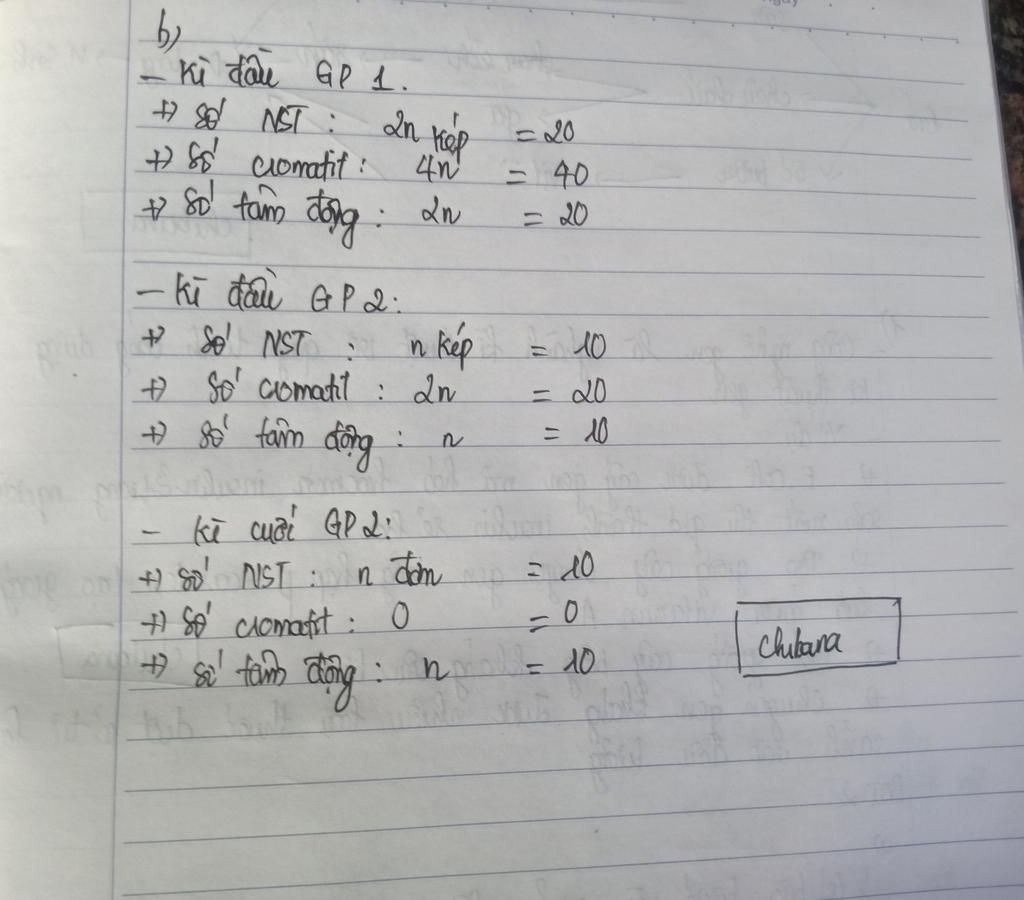 b)
- Kì đầu GP 1.
+) Số NST : 2n kép = 20
+) Số cromatit : 4n = 40
+) Số tâm động : 2n = 20
- Kì đầu GP 2:
+) Số NST : n kép = 10
+) Số cromatit : 2n = 20
+) Số tâm động : n = 10
- Kì cuối GP 2:
+) Số NST : n đơn = 10
+) Số cromatit : 0 = 0
+) Số tâm động : n = 10
Chibana